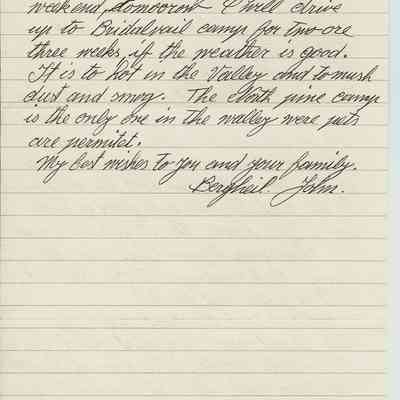 weekend, tomoorow I will drive
up to Bridalvail camp for two ore
three weeks, if the weather is good.
It is to hot in the Valley and to mush
dust and smog. The North pine camp
is the only one in the walley were pets
are permitet.
My best wishes to you and your family.
Bergheil. John.